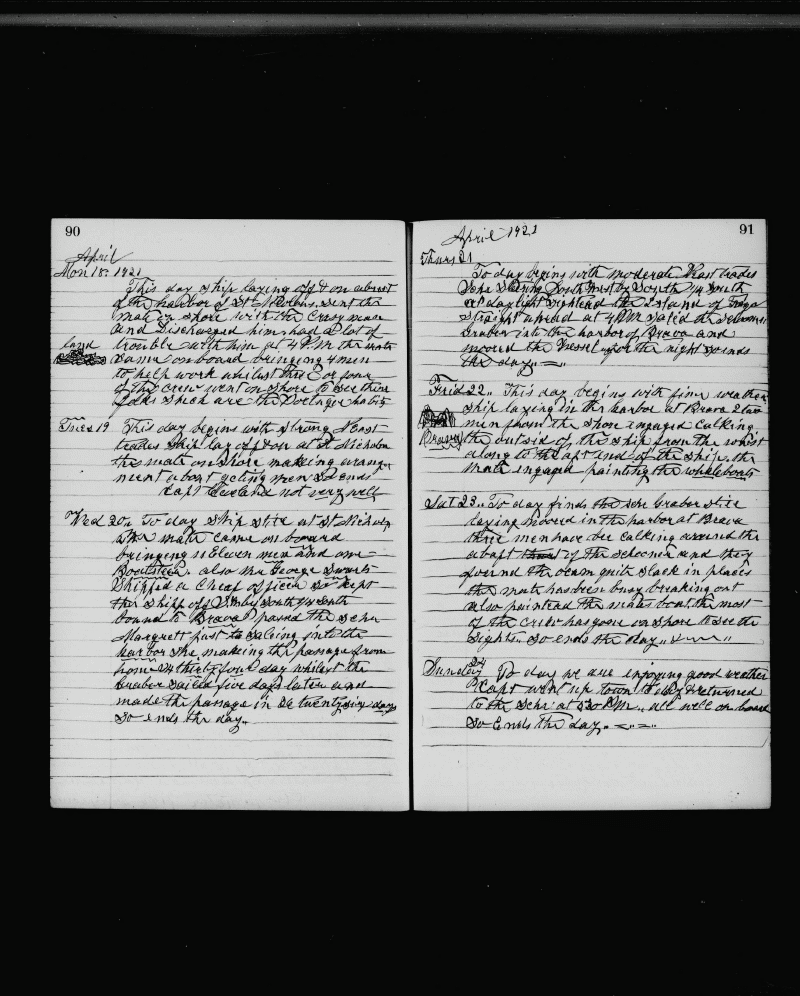 90
April
Mon 18, 1921
This day ship laying off & on abreast
of the harbor of St Nicholas. sent the
mate on shore with the crasy man
and Discharged him, had a lot of
land trouble with him at 4 P.M. the mate
came onboard bringing 4 men
to help work whilst three or four
of the crew went on shore to see their
folks which are the Portugee habits
Tues 19 This day begins with strong N East
trades Ship lay off & on at St Nicholas
the mate on shore making arange
ment about geting men So ends
Capt Cleveland not very well
Wed 20, To day Ship still at St Nicholas
The mate came on board
bringing 11 Eleven men and one
Boatsteer. also Mr George
Shipped a Cheaf officer so kept
the Ship off South 1/4 South
bound to Brava passed the schr
Margrett just to saleing into the
harbor she making the passage from
home 34 thirty four day whilst the
Graber sailed five days later and
made the passage in 26 twenty six days
So ends the day..
91
April 1921
Thurs 21
To day begins with moderate N East trades
Schr Stering South West by South 1/4 South
at daylight sighted the Island of Fogo
straight ahead at 4 P.M. sailed the schooner
Graber into the harbor of Brava and
moored the Vessel for the night So ends
the day..
Frid 22.. This day begins with fine weather
ship laying in the harbor at Brava 2 two
men from the shore engaged Calking
Brava the outside of the ship from the
along to the aft end of the ship. the
Mate engaged painting the whaleboats
Sat 23.. To day finds the schr Graber still
laying moored in the harbor at Brava
three men have be calking around the
abaft of the schooner and they
found the Ocam quite Slack in places
the mate has been busy breaking out
also paintead the mates boat, the most
of the crew has gone on shore to see the
sights.. So ends the day..
Sunday 24 To day we are enjoying good weather
Capt went up town to day & returned
to the Schr at 5 30 P.M.. all well on board
So Ends the day..